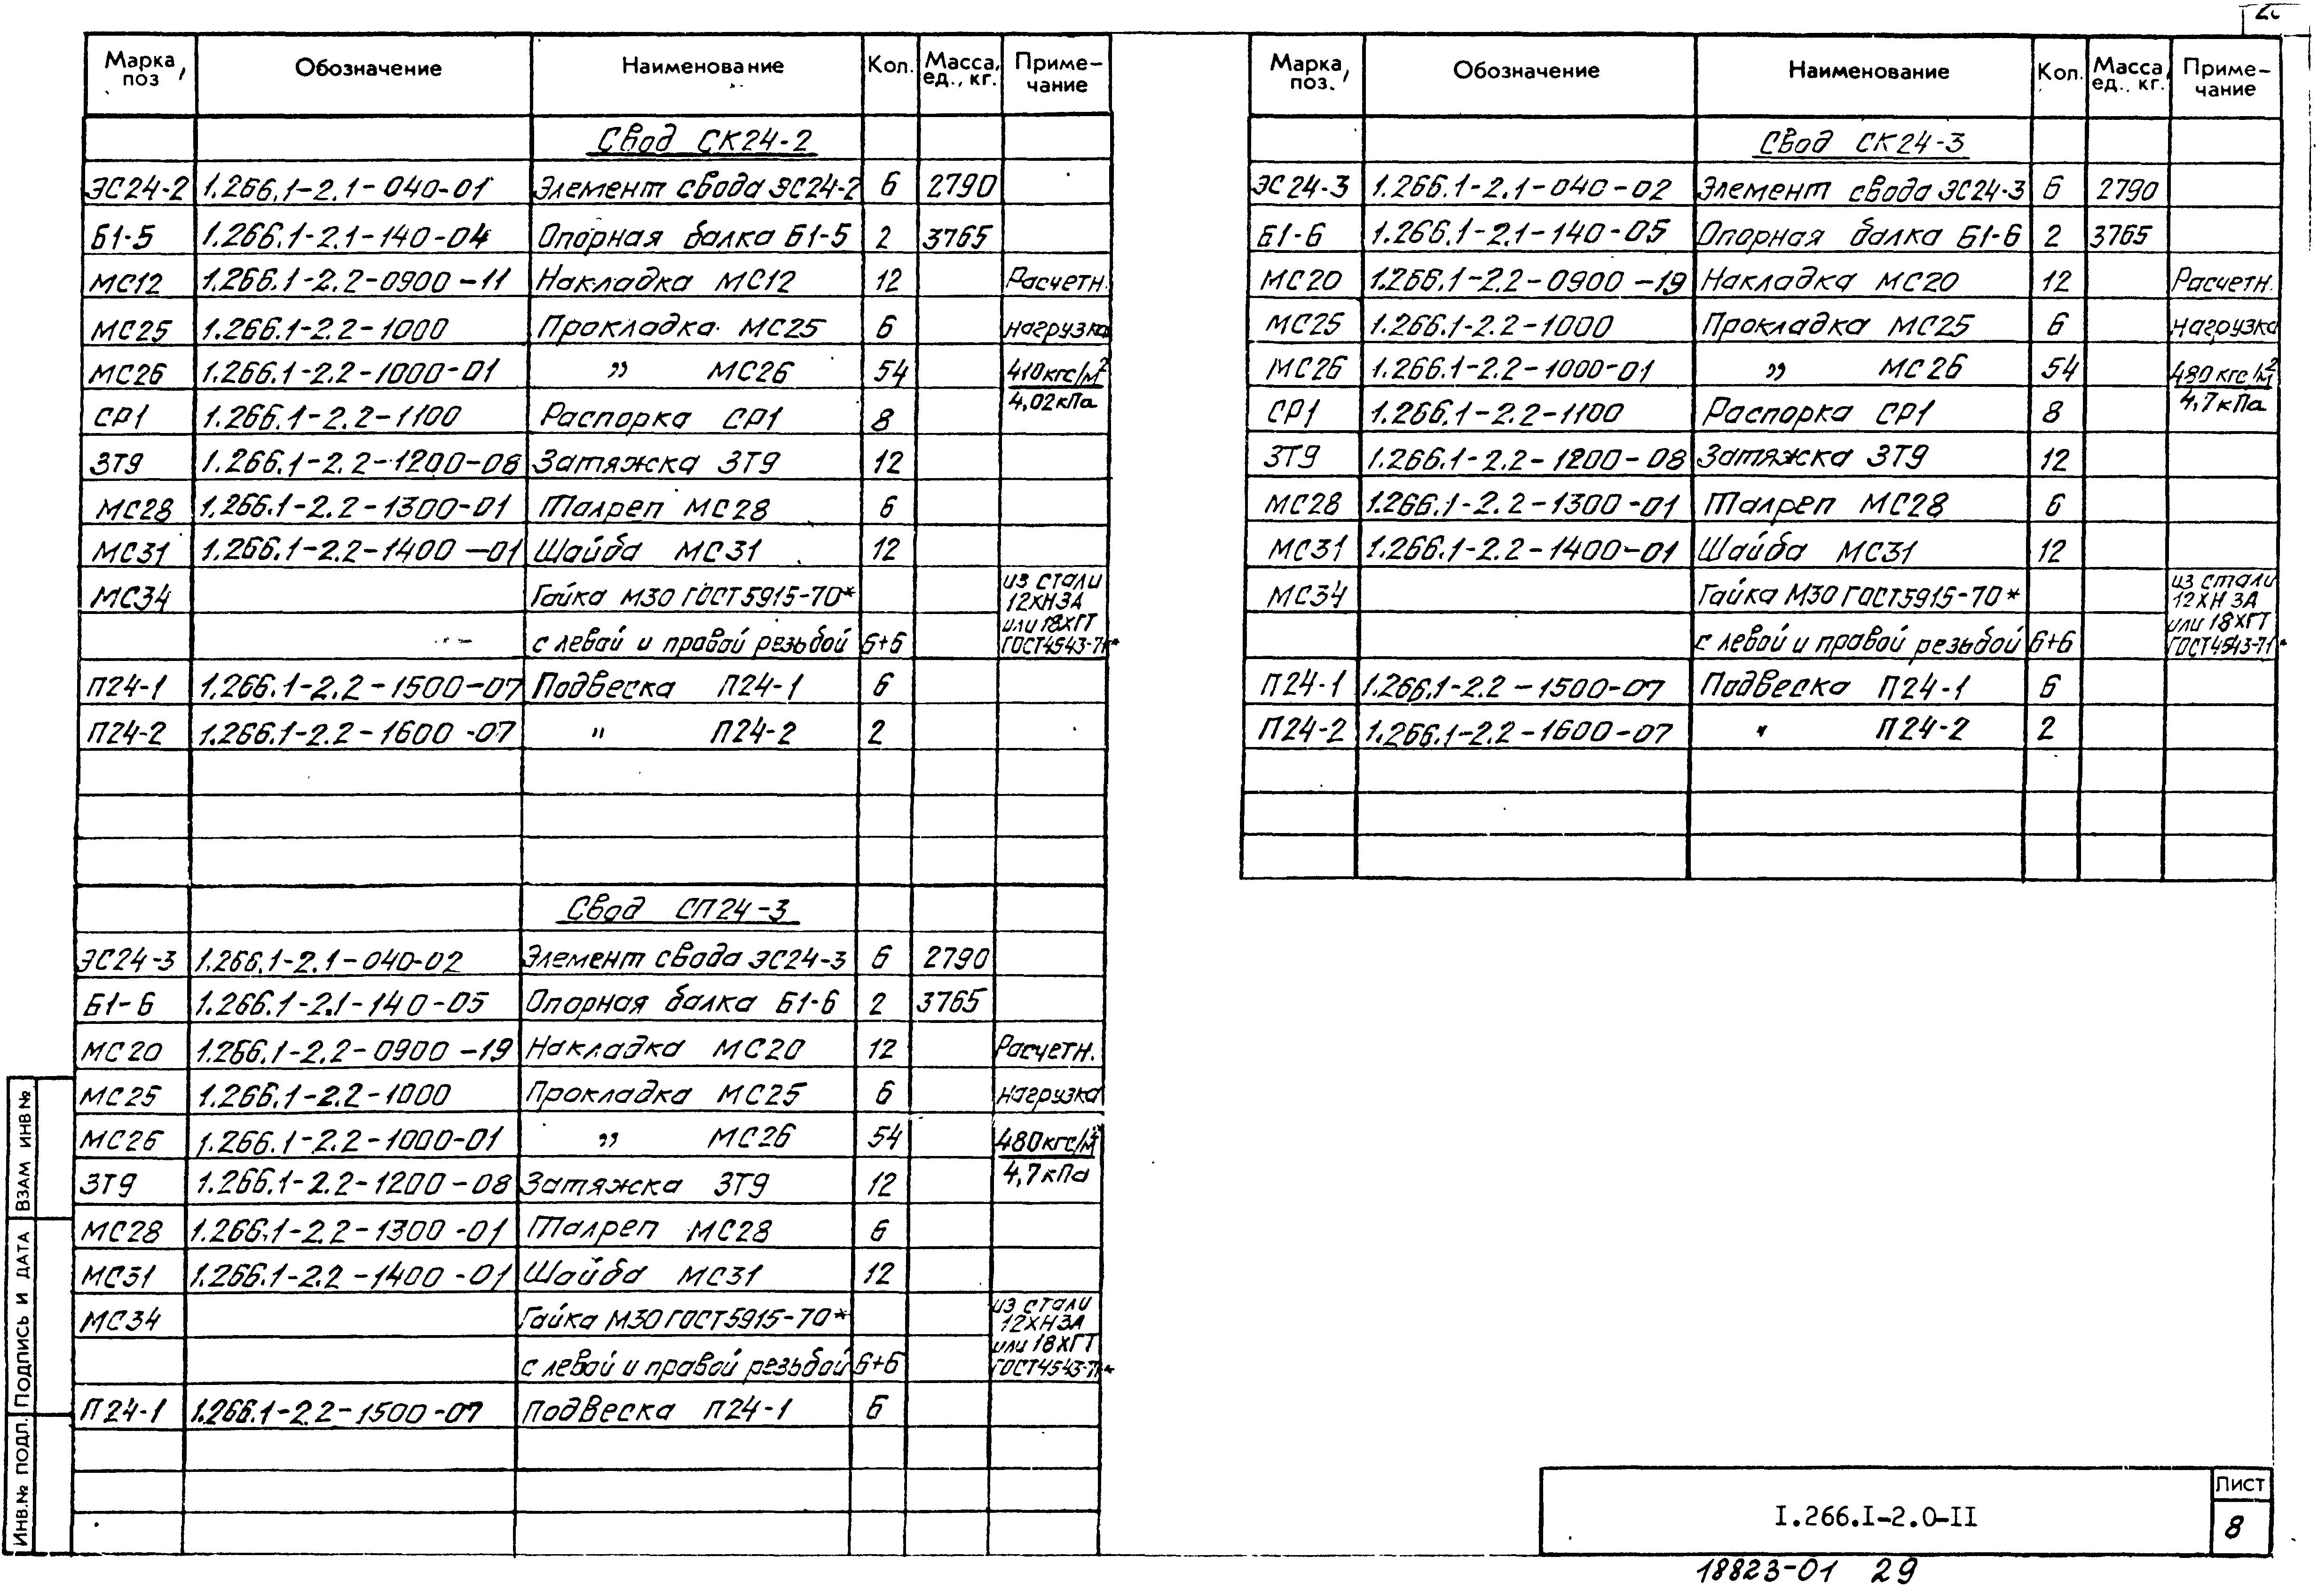 Марка, поз | Обозначение | Наименование | Кол. | Масса, ед., кг. | Приме-чание
Свод СК24-2
ЭС24-2 | 1.266.1-2.1-040-01 | Элемент свода ЭС24-2 | 6 | 2790
Б1-5 | 1.266.1-2.1-140-04 | Опорная балка Б1-5 | 2 | 3765
МС12 | 1.266.1-2.2-0900-11 | Накладка МС12 | 12 | | Расчетн.
МС25 | 1.266.1-2.2-1000 | Прокладка МС25 | 6 | | нагрузка
МС26 | 1.266.1-2.2-1000-01 | " МС26 | 54 | | 410 кгс/м²
СР1 | 1.266.1-2.2-1100 | Распорка СР1 | 8 | | 4,02 кПа
ЗТ9 | 1.266.1-2.2-1200-08 | Затяжка ЗТ9 | 12
МС28 | 1.266.1-2.2-1300-01 | Талреп МС28 | 6
МС31 | 1.266.1-2.2-1400-01 | Шайба МС31 | 12
МС34 | | Гайка М30 ГОСТ 5915-70* | | | из стали 12ХН3А
с левой и правой резьбой | 6+6 | | или 18ХГТ ГОСТ 4543-71*
П24-1 | 1.266.1-2.2-1500-07 | Подвеска П24-1 | 6
П24-2 | 1.266.1-2.2-1600-07 | " П24-2 | 2
Свод СП24-3
ЭС24-3 | 1.266.1-2.1-040-02 | Элемент свода ЭС24-3 | 6 | 2790
Б1-6 | 1.266.1-2.1-140-05 | Опорная балка Б1-6 | 2 | 3765
МС20 | 1.266.1-2.2-0900-19 | Накладка МС20 | 12 | | Расчетн.
МС25 | 1.266.1-2.2-1000 | Прокладка МС25 | 6 | | нагрузка
МС26 | 1.266.1-2.2-1000-01 | " МС26 | 54 | | 480 кгс/м²
ЗТ9 | 1.266.1-2.2-1200-08 | Затяжка ЗТ9 | 12 | | 4,7 кПа
МС28 | 1.266.1-2.2-1300-01 | Талреп МС28 | 6
МС31 | 1.266.1-2.2-1400-01 | Шайба МС31 | 12
МС34 | | Гайка М30 ГОСТ 5915-70* | | | из стали 12ХН3А
с левой и правой резьбой | 6+6 | | или 18ХГТ ГОСТ 4543-71*
П24-1 | 1.266.1-2.2-1500-07 | Подвеска П24-1 | 6
Марка, поз. | Обозначение | Наименование | Кол. | Масса, ед., кг. | Приме-чание
Свод СК24-3
ЭС24-3 | 1.266.1-2.1-040-02 | Элемент свода ЭС24-3 | 6 | 2790
Б1-6 | 1.266.1-2.1-140-05 | Опорная балка Б1-6 | 2 | 3765
МС20 | 1.266.1-2.2-0900-19 | Накладка МС20 | 12 | | Расчетн.
МС25 | 1.266.1-2.2-1000 | Прокладка МС25 | 6 | | нагрузка
МС26 | 1.266.1-2.2-1000-01 | " МС26 | 54 | | 480 кгс/м²
СР1 | 1.266.1-2.2-1100 | Распорка СР1 | 8 | | 4,7 кПа
ЗТ9 | 1.266.1-2.2-1200-08 | Затяжка ЗТ9 | 12
МС28 | 1.266.1-2.2-1300-01 | Талреп МС28 | 6
МС31 | 1.266.1-2.2-1400-01 | Шайба МС31 | 12
МС34 | | Гайка М30 ГОСТ 5915-70* | | | из стали 12ХН3А
с левой и правой резьбой | 6+6 | | или 18ХГТ ГОСТ 4543-71*
П24-1 | 1.266.1-2.2-1500-07 | Подвеска П24-1 | 6
П24-2 | 1.266.1-2.2-1600-07 | " П24-2 | 2
Инв.№ подл. Подпись и дата Взам инв №
I.266.I-2.0-II
Лист
8
18823-01 29